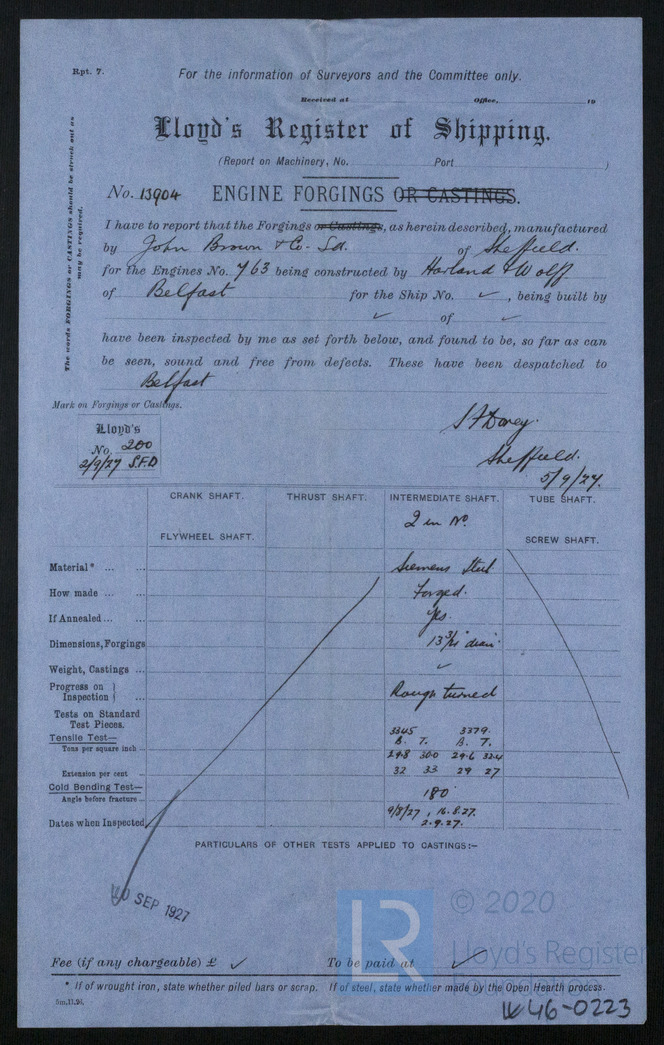 Rpt. 7.
For the information of Surveyors and the Committee only.
Received at Office, 19
Lloyd's Register of Shipping.
(Report on Machinery, No. Port )
No. 13904 ENGINE FORGINGS OR CASTINGS.
The words FORGINGS or CASTINGS should be struck out as
may be required.
I have to report that the Forgings or Castings, as herein described, manufactured
by John Brown & Co. Ld. of Sheffield.
for the Engines No. 763 being constructed by Harland & Wolff
of Belfast for the Ship No. ✓, being built by
✓ of ✓
have been inspected by me as set forth below, and found to be, so far as can
be seen, sound and free from defects. These have been despatched to
Belfast
Mark on Forgings or Castings.
Lloyd's
No. 200
2/9/27 S.F.D
S F Dorey.
Sheffield.
5/9/27.
CRANK SHAFT. THRUST SHAFT. INTERMEDIATE SHAFT. TUBE SHAFT.
2 in No
FLYWHEEL SHAFT. SCREW SHAFT.
Material* ... ... Siemens Steel
How made ... ... Forged.
If Annealed ... ... Yes.
Dimensions, Forgings diam.
Weight, Castings ... ✓
Progress on Inspection } ... Rough turned
Tests on Standard
Test Pieces.
3345 3379.
Tensile Test— B. T. B. T.
Tons per square inch ... 29.8 30.0 29.6 32.4
Extension per cent ... 32 33 29 27
Cold Bending Test—
Angle before fracture ... 180°
Dates when Inspected 9/8/27, 16.8.27.
2.9.27.
PARTICULARS OF OTHER TESTS APPLIED TO CASTINGS:—
SEP 1927
Fee (if any chargeable) £ ✓ To be paid at ✓
* If of wrought iron, state whether piled bars or scrap. If of steel, state whether made by the Open Hearth process.
5m,11,24.
LR
© 2020
Lloyd's Register
Foundation
W46-0223